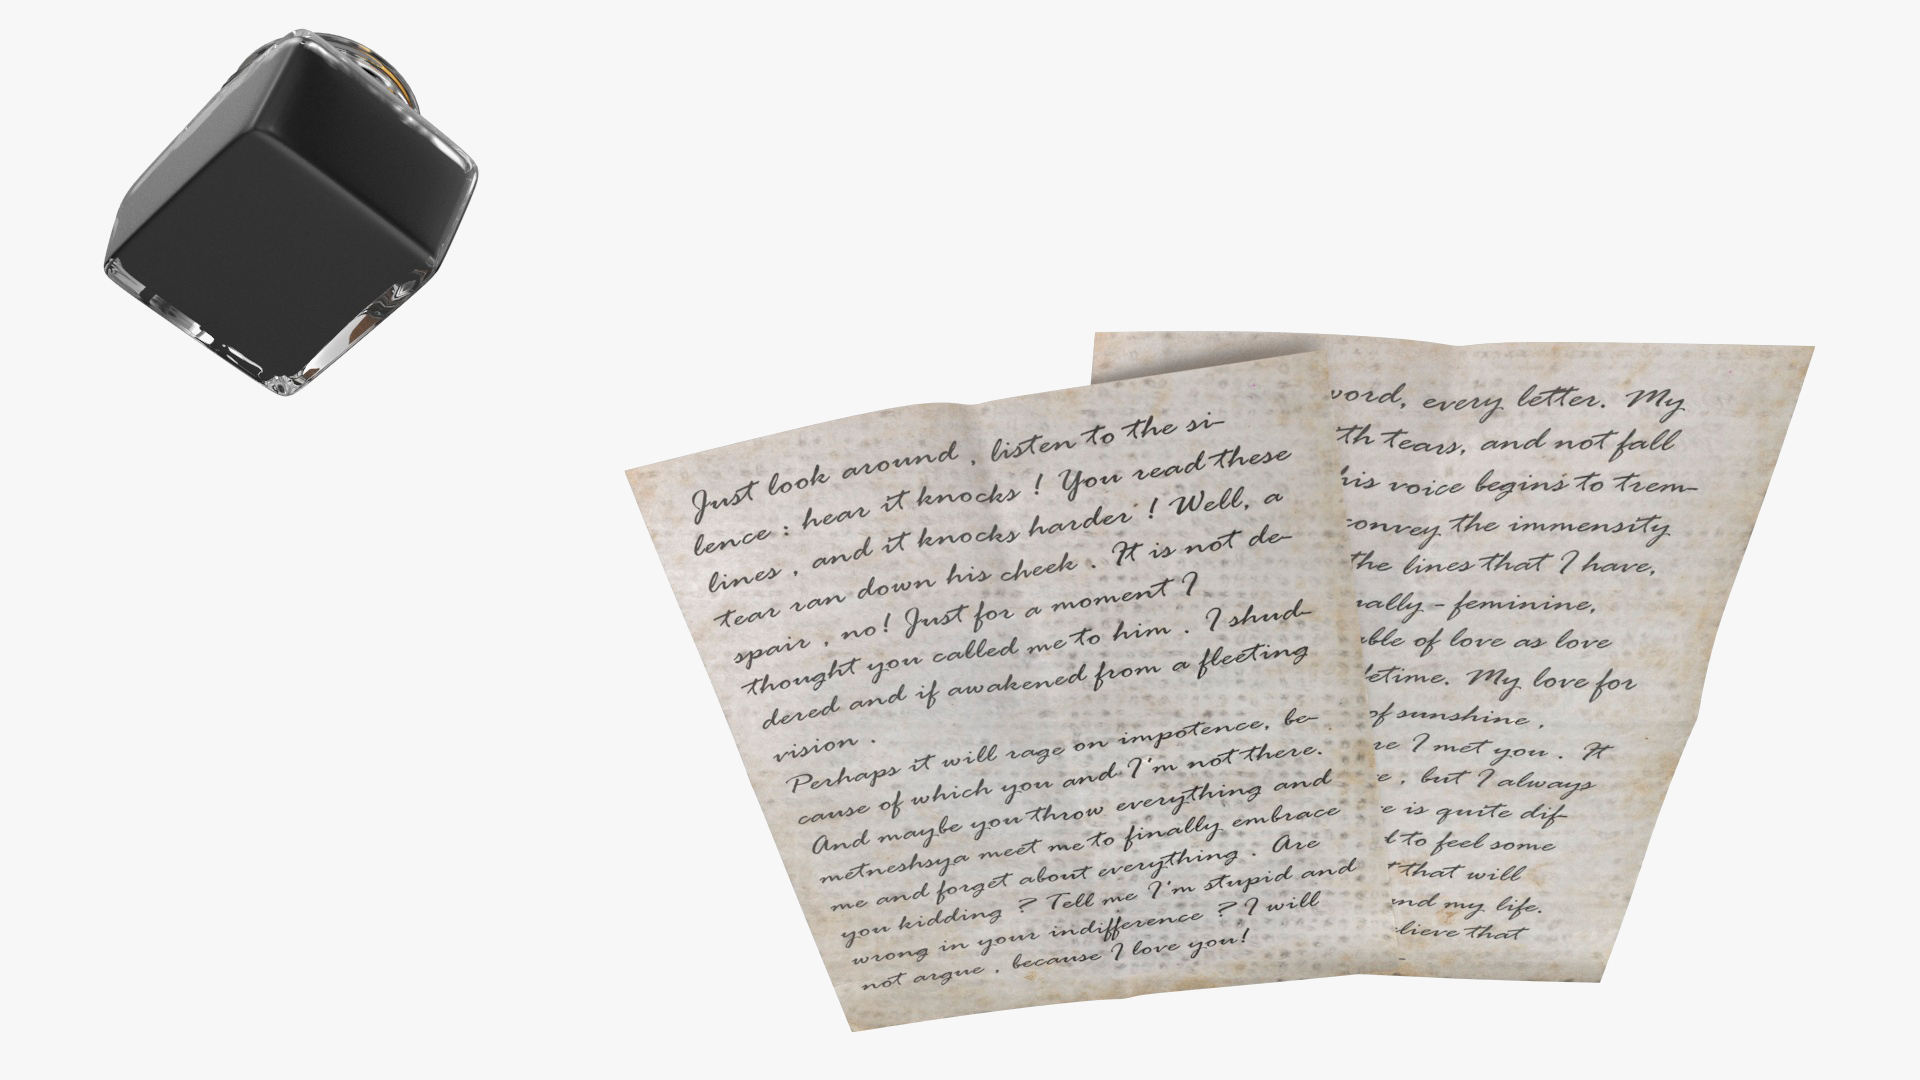 Just look around , listen to the si-
lence : hear it knocks ! You read these
lines , and it knocks harder ! Well, a
tear ran down his cheek . It is not de-
spair , no! Just for a moment I
thought you called me to him . I shud-
dered and if awakened from a fleeting
vision .
Perhaps it will rage on impotence, be-
cause of which you and I'm not there.
And maybe you throw everything and
metneshsya meet me to finally embrace
me and forget about everything . Are
you kidding ? Tell me I'm stupid and
wrong in your indifference ? I will
not argue , because I love you!
every letter. My
tears, and not fall
voice begins to trem-
the immensity
the lines that I have,
- feminine,
of love as love
My love for
of sunshine .
I met you . It
, but I always
is quite dif-
to feel some
that will
my life.
that